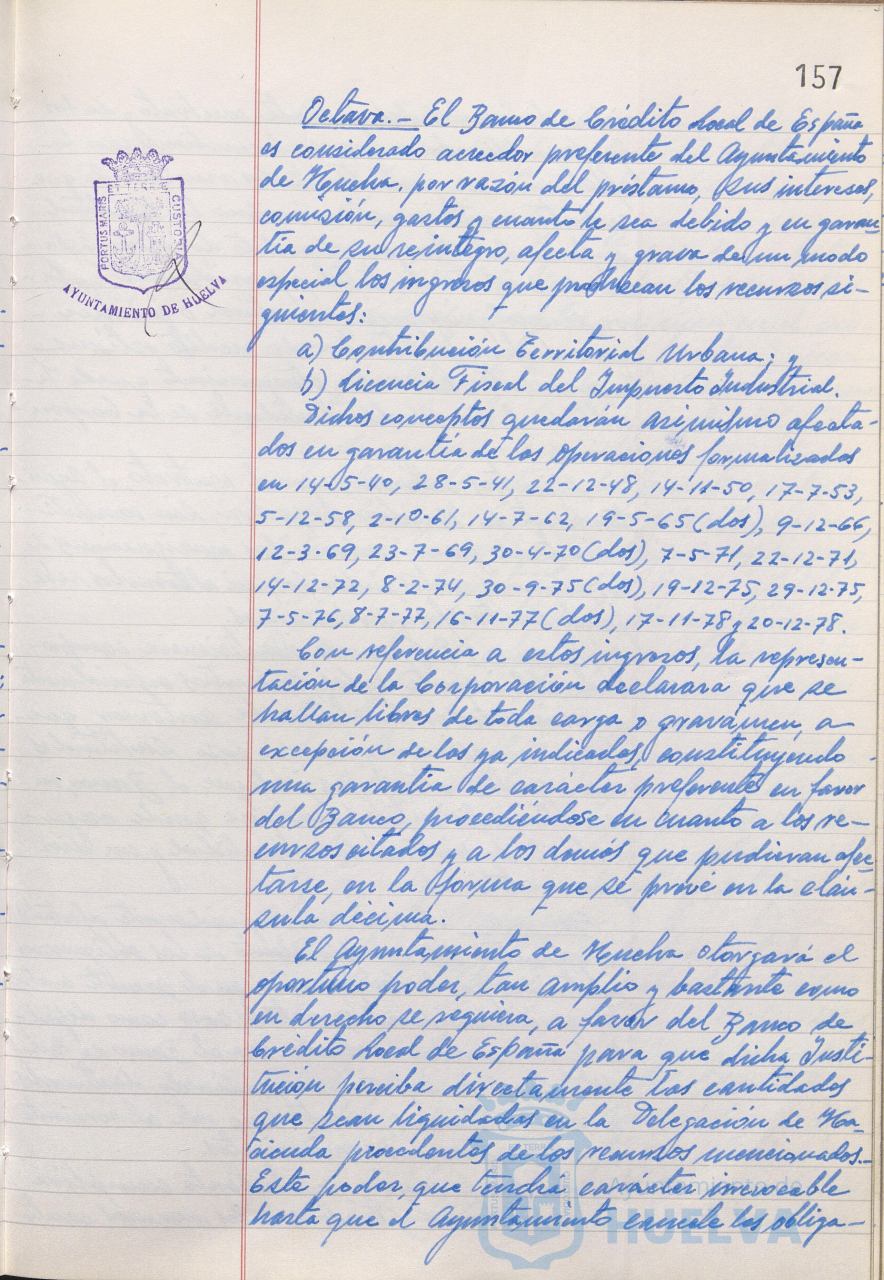 157
Octava.- El Banco de Crédito Local de España
es considerado acreedor preferente del Ayuntamiento
de Huelva, por razón del préstamo, sus intereses,
comisión, gastos y cuanto le sea debido y en garan-
tía de su reintegro, afecta y grava de un modo
especial los ingresos que produzcan los recursos si-
guientes:
a) Contribución Territorial Urbana; y
b) Licencia Fiscal del Impuesto Industrial.
Dichos conceptos quedarán asimismo afecta-
dos en garantía de las operaciones formalizadas
en 14-5-40, 28-5-41, 22-12-48, 14-11-50, 17-7-53,
5-12-58, 2-10-61, 14-7-62, 19-5-65 (dos), 9-12-66,
12-3-69, 23-7-69, 30-4-70 (dos), 7-5-71, 22-12-71,
14-12-72, 8-2-74, 30-9-75 (dos), 19-12-75, 29-12-75,
7-5-76, 8-7-77, 16-11-77 (dos), 17-11-78 y 20-12-78.
Con referencia a estos ingresos, la represen-
tación de la Corporación declara que se
hallan libres de toda carga o gravámen, a
excepción de los ya indicados, constituyendo
una garantía de carácter preferente en favor
del Banco, procediéndose en cuanto a los re-
cursos citados y a los demás que pudieran afec-
tarse, en la forma que se prevé en la cláu-
sula décima.
El Ayuntamiento de Huelva otorgará el
oportuno poder, tan amplio y bastante como
en derecho se requiera, a favor del Banco de
Crédito Local de España para que dicha Insti-
tución perciba directamente las cantidades
que sean liquidadas en la Delegación de Ha-
cienda procedentes de los recursos mencionados.-
Este poder, que tendrá carácter irrevocable
hasta que el Ayuntamiento cancele las obliga-
PORTUS MARIS ET TERRE CUSTODIA
AYUNTAMIENTO DE HUELVA
Ayuntamiento de
HUELVA